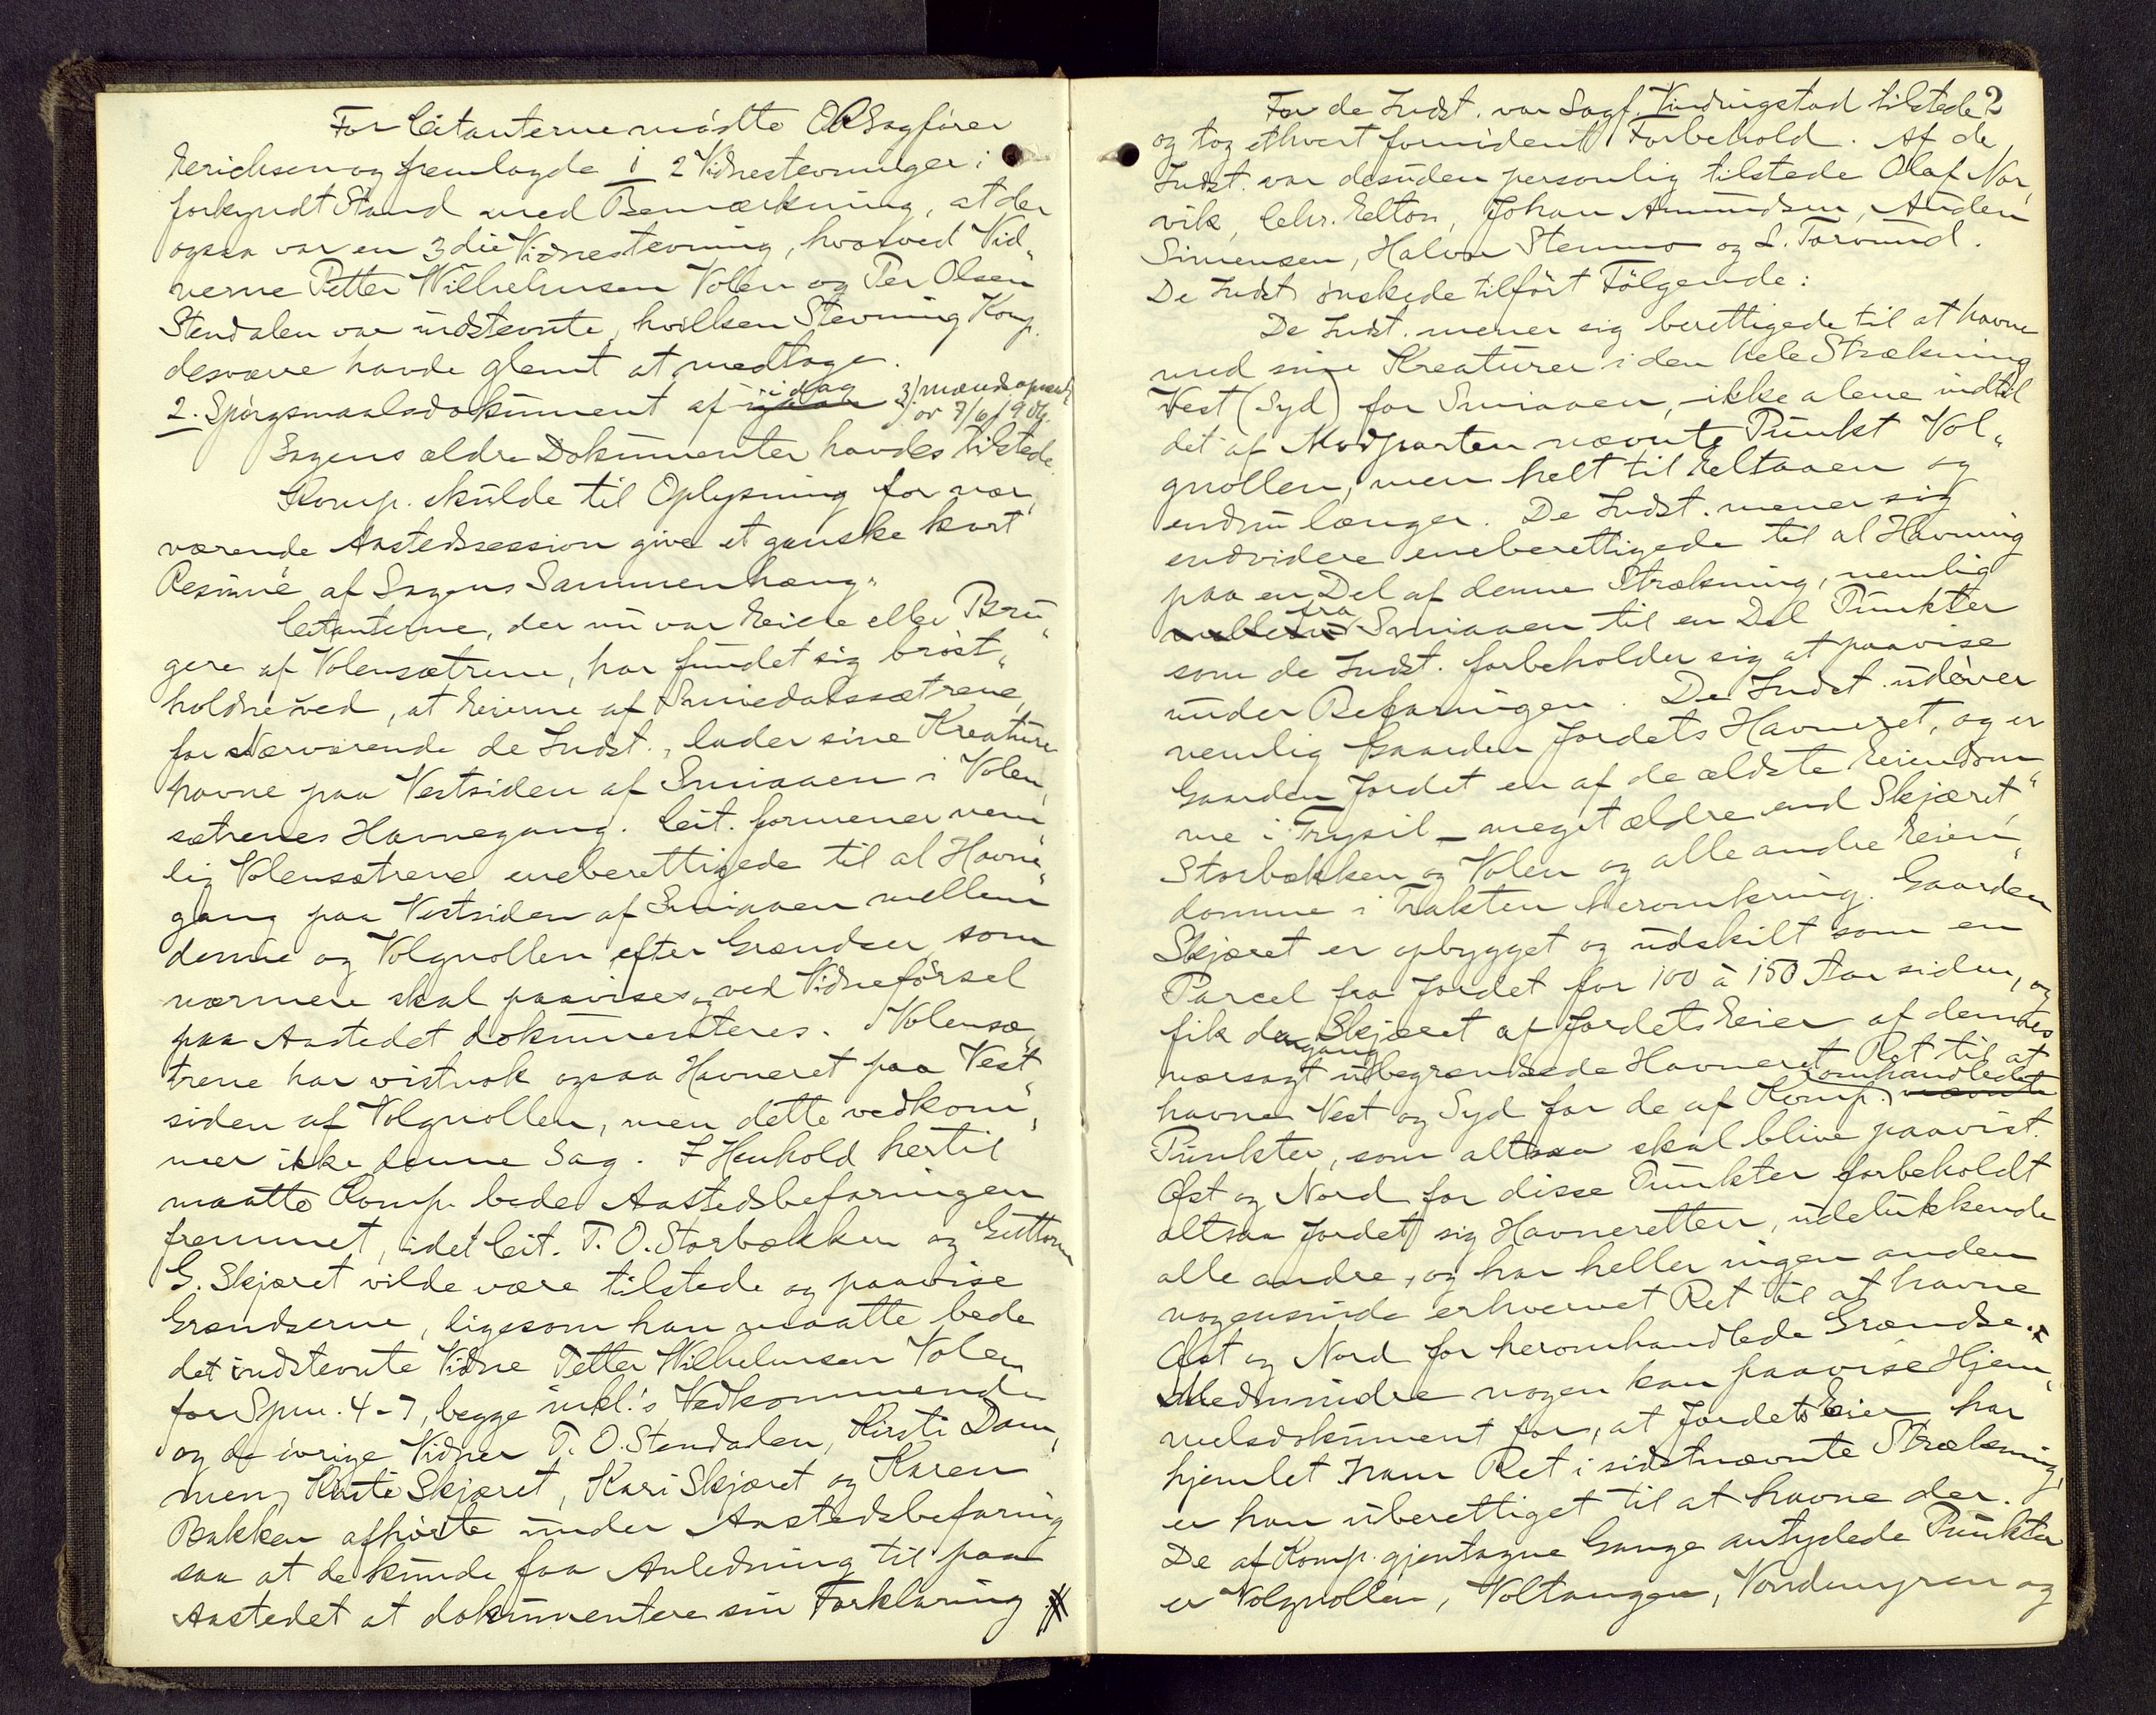 For Citanterne mødte ORSagfører
Erichsen og fremlagde 1 2 Vidnestevninger i
forkyndt Stand med Bemærkning, at der
ogsaa var en 3die Vidnestevning, hvorved Vid„
nerne Petter Wilhelmsen Volen og Per Olsen
Stendalen var indstevnte, hvilken Stevning Komp.
desværre havde glemt at medtage.
2. Spørgsmaalsdokument af idag 3). mandsopnævn
or 7/6 19
Sagens ældre Dokumenter havdes tilstede.
Komp. skulde til Oplysning for nær„
værende Aastedssession give et ganske kort
Resumé af Sagens Sammenhæng.
Citanterne, der nu var Eiere eller Bru„
gere af Volensætrene, har fundet sig brøst„
holdne ved, at Eierne af Smiedalssætrene,
for Nærværende de Indst., lader sine Kreature
havne paa Vestsiden af Smiaaen i Volen„
sætrenes Havnegang. Cit. formener nem„
lig Volensætrene eneberettigede til al Havne„
gang paa Vestsiden af Smiaaen mellem
denne og Volgnollen efter Grændser som
nærmere skal paavises og ved Vidneførsel
paa Aastedet dokumenteres. Volensæ„
trene har vistnok ogsaa Havneret paa Vest„
siden af Volgnollen, men dette vedkom„
mer ikke denne Sag. I Henhold hertil
maatte Komp. bede Aastedsbefaringen
fremmet, idet Cit. T. O. Storbækken og Guttorm
G. Skjæret vilde være tilstede og paavise
Grændserne, ligesom han maatte bede
det indstevnte Vidne Petter Wilhelmsen Volen
for Spm. 4-7, begge inkl.'s Vedkommende
og de øvrige Vidner T. O. Stendalen, Kirsti Dam„
men, Kirsti Skjæret, Kari Skjæret og Karen
Bakken afhørte under Aastedsbefaring
saa at de kunde faa Anledning til paa
Aastedet at dokumentere sin Forklaring
For de Indst. var Sagf. Vindringstad tilstede 2
og tog ethvert fornødent Forbehold. Af de
Indst. var desuden personlig tilstede Olaf Nor„
vik, Chr. Elton, Johan Amundsen, Auden
Simensen, Halvor Stemmo og S. Torvund.
De Indst. ønskede tilført Følgende:
De Indst. mener sig berettigede til at havne
med sine Kreaturer i den hele Strækning
Vest (Syd) for Smiaaen, ikke alene indtil
det af Modparten nævnte Punkt Vol„
gnollen, men helt til Eltaaen og
endnu længer. De Indst. mener sig
endvidere eneberettigede til al Havning
paa en Del af denne Strækning, nemlig
fra Smiaaen til en Del Punkter
som de Indst. forbeholder sig at paavise
under Befaringen. De Indst. udøver
nemlig Gaarden Jordets Havneret, og er
Gaarden Jordet en af de ældste Eiendom„
me i Trysil – meget ældre end Skjæret„
Storbækken og Volen og alle andre Eien„
domme i Trakten heromkring. Gaarden
Skjæret er opbygget og udskilt som en
Parcel fra Jordet for 100 à 150 Aar siden, og
fik dengang Skjæret af Jordets Eier af dennes
nærsagt ubegrændsede Havneret Ret til at
havne Vest og Syd for de af Komp. omhandlede
Punkter, som altsaa skal blive paavist.
Øst og Nord for disse Punkter forbeholdt
altsaa Jordet sig Havneretten, udelukkende
alle andre, og har heller ingen anden
nogensinde erhvervet Ret til at havne
Øst og Nord for heromhandlede Grændse.
Medmindre nogen kan paavise Hjem„
melsdokument for, at Jordets Eier har
hjemlet ham Ret i sidstnævnte Strækning,
er han uberettiget til at havne der.
De af Komp. gjentagne Gange antydede Punkter
er Volgnollen, Voltangen, Vondemyren og